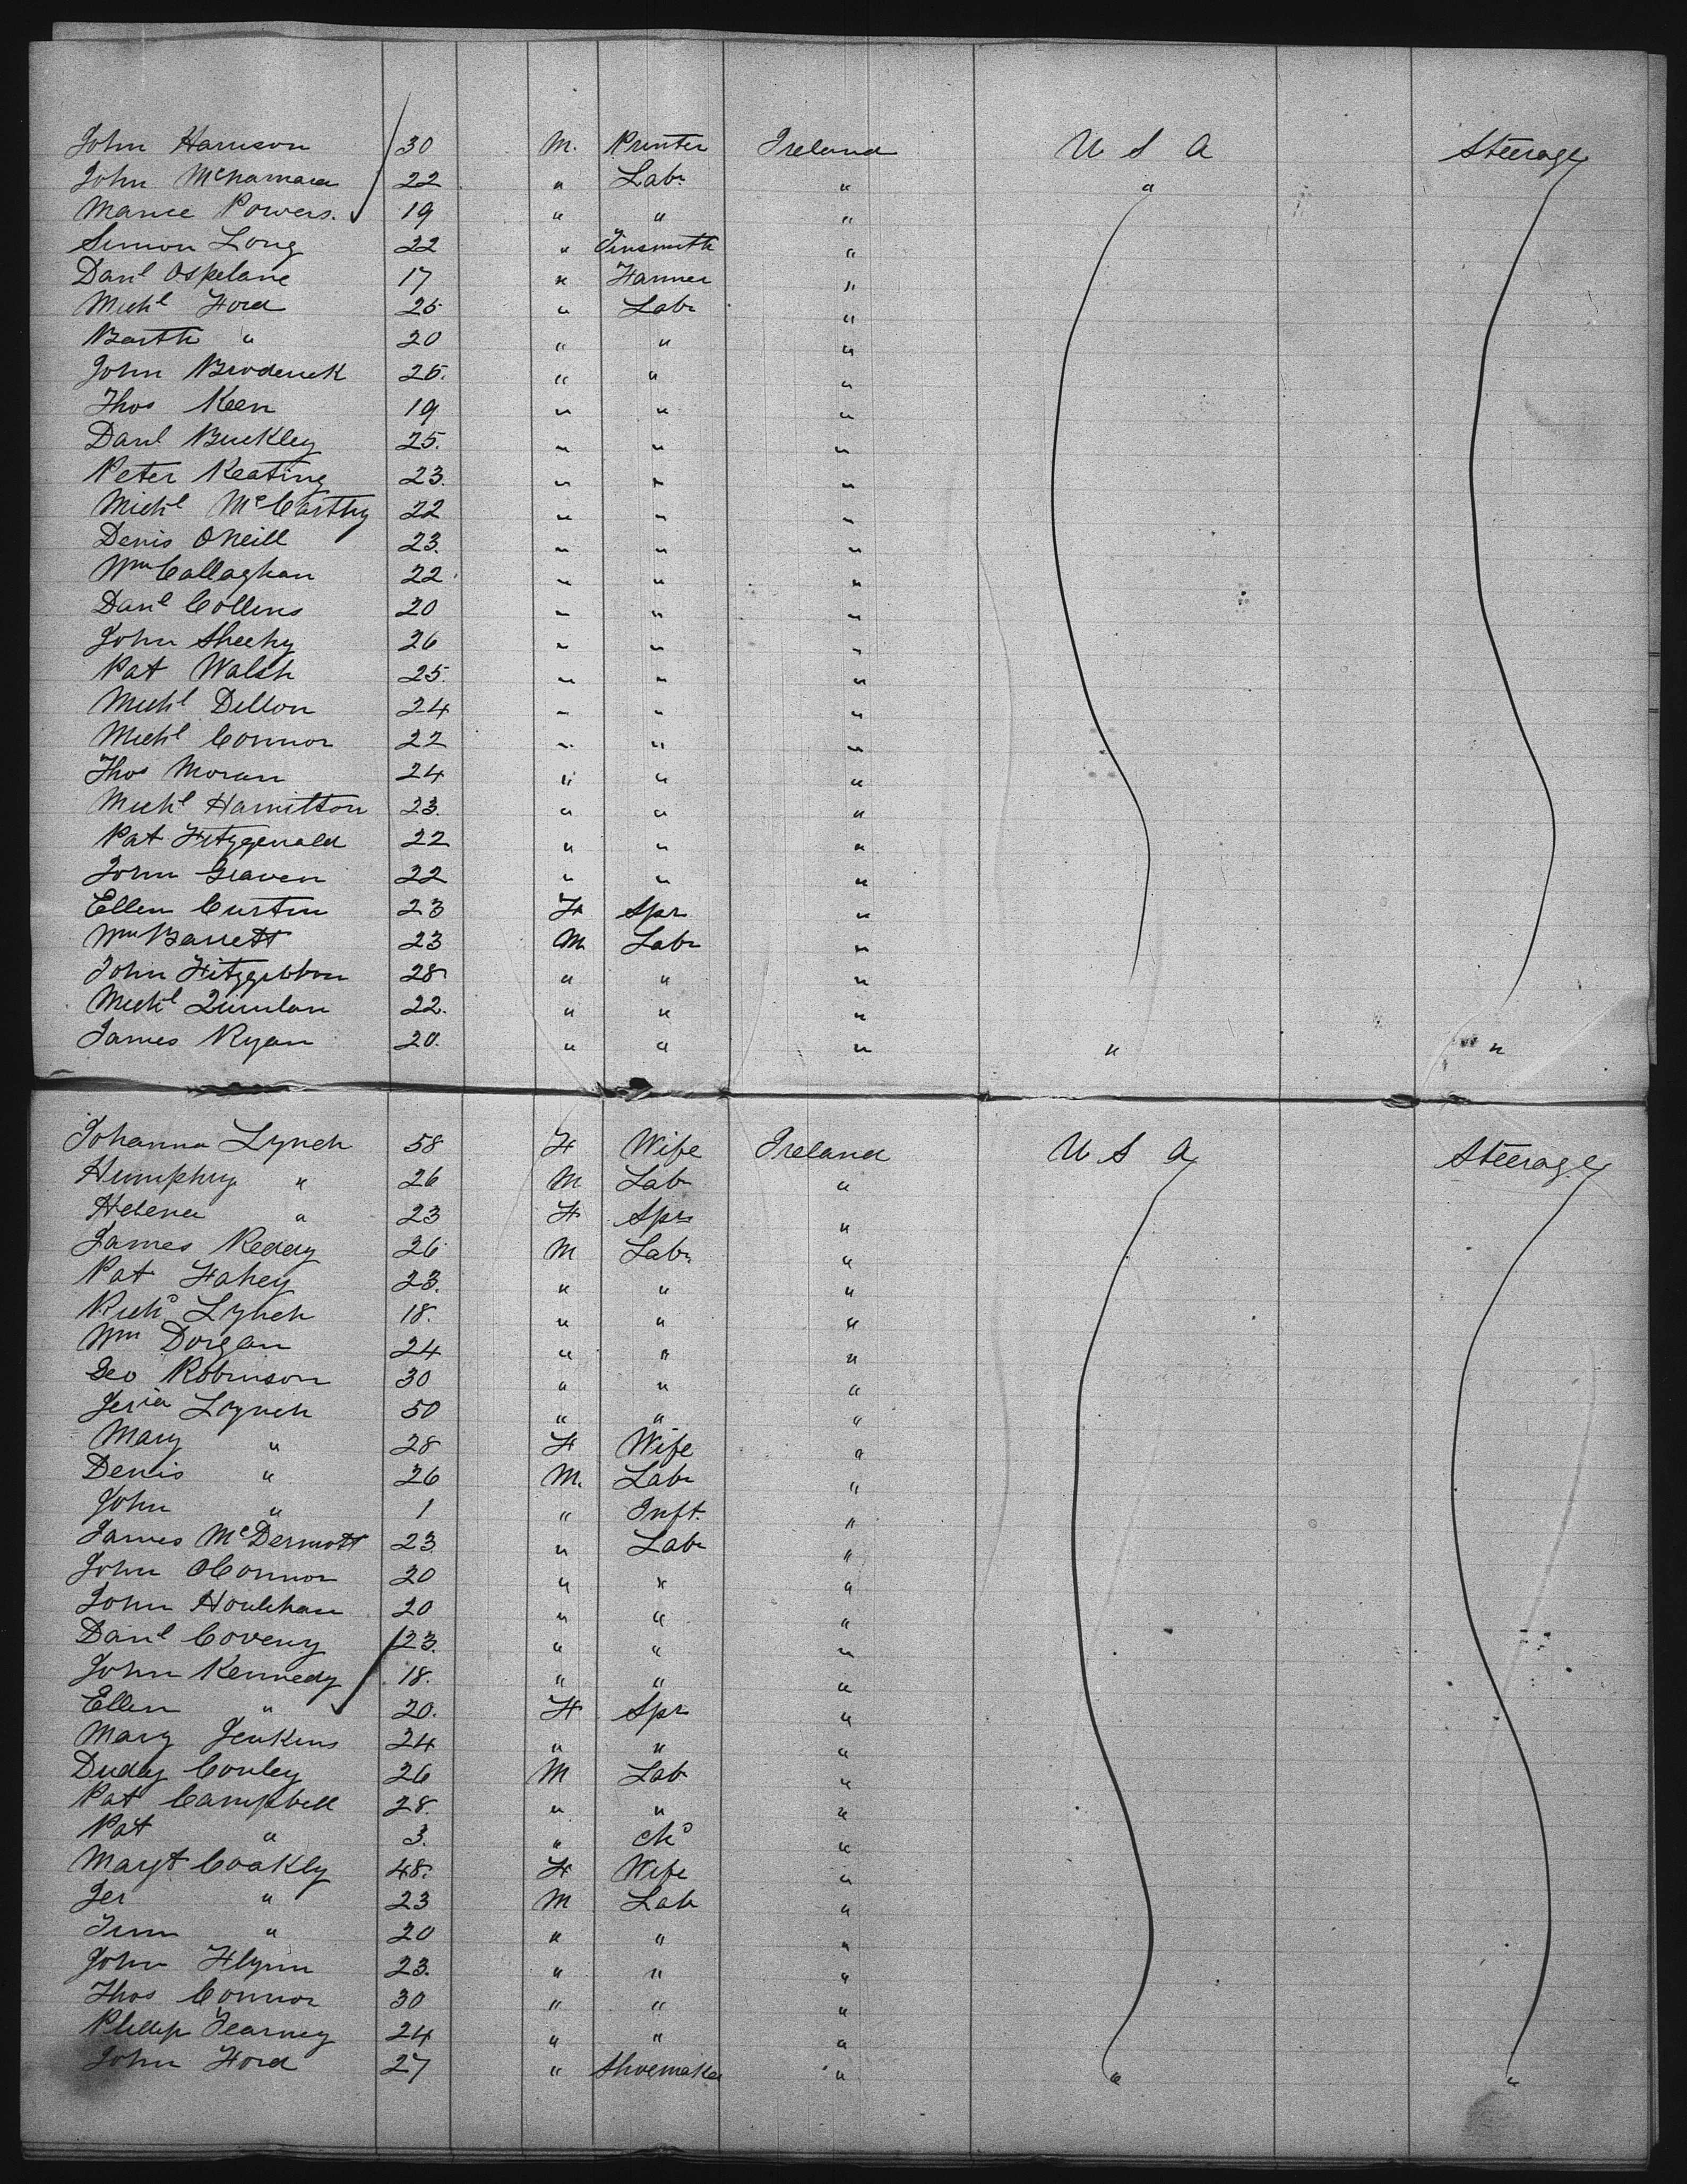 John Harrison 30 M. Printer Ireland U S A Steerage
John McNamara 22 " Labr " "
Mance Powers. 19 " " "
Simon Long 22 " Tinsmith "
Danl 17 " Farmer "
Michl Ford 25 " Labr "
Barth " 20 " " "
John Broderick 25. " " "
Thos Keen 19 " " "
Danl Buckley 25. " " "
Peter Keating 23. " " "
Michl McCarthy 22 " " "
Denis ONeill 23. " " "
Wm Callaghan 22 " " "
Danl Collins 20 " " "
John Sheehy 26 " " "
Pat Walsh 25. " " "
Michl Dillon 24 " " "
Michl Connor 22 " " "
Thos Moran 24 " " "
Michl Hamilton 23. " " "
Pat Fitzgerald 22 " " "
John Graven 22 " " "
Ellen Curtin 23 F Spr "
Wm Barrett 23 M Labr "
John Fitzgibbon 28 " " "
Michl Quinlan 22. " " "
James Ryan 20. " " " " "
Johanna Lynch 58 F Wife Ireland U S A Steerage
Humphry " 26 M Labr "
Helena " 23 F Spr "
James Reddy 26 M Labr "
Pat Fahey 23. " " "
Richd Lynch 18. " " "
Wm Dorgan 24 " " "
Geo Robinson 30 " " "
Jeria Lynch 50 " " "
Mary " 28 F Wife "
Denis " 26 M. Labr "
John " 1 " Inft. "
James McDermott 23 " Labr "
John OConnor 20 " " "
John Houlihan 20 " " "
Danl Coveny 23. " " "
John Kennedy 18. " " "
Ellen " 20. F Spr "
Mary Jenkins 24 " " "
Dudy Conley 26 M Lab "
Pat Campbell 28. " " "
Pat " 3. " chd "
Margt Coakly 48. F Wife "
Jer " 23 M Lab "
Tim " 20 " " "
John Flynn 23. " " "
Thos Connor 30 " " "
Phillip 24 " " "
John Ford 27 " Shoemaker " " "